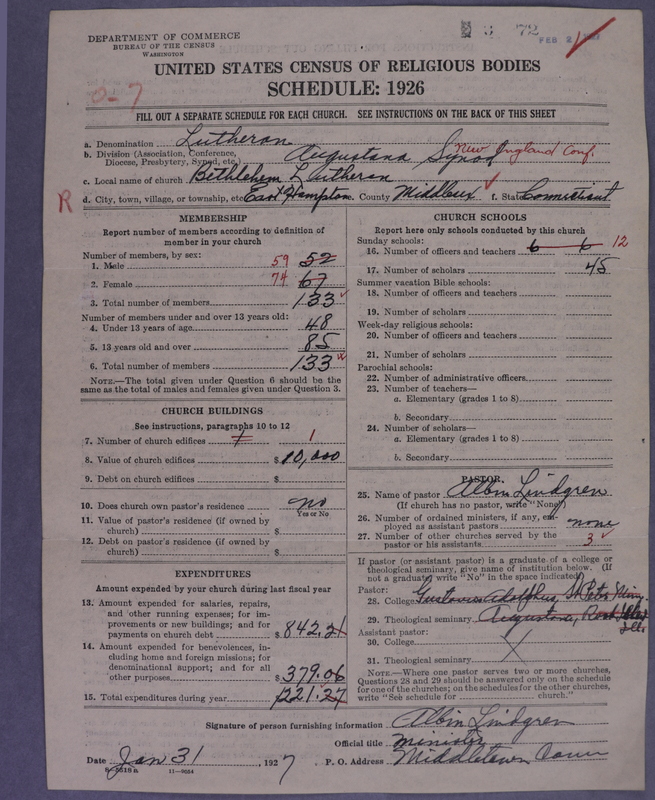 DEPARTMENT OF COMMERCE
BUREAU OF THE CENSUS
WASHINGTON
5 '72
FEB 2 1927
UNITED STATES CENSUS OF RELIGIOUS BODIES
SCHEDULE: 1926
0-7
FILL OUT A SEPARATE SCHEDULE FOR EACH CHURCH. SEE INSTRUCTIONS ON THE BACK OF THIS SHEET
a. Denomination Lutheran
b. Division (Association, Conference, Diocese, Presbytery, Synod, etc.) Augustana Synod New England Conf.
c. Local name of church Bethlehem Lutheran
R d. City, town, village, or township, etc. East Hampton County Middlesex f. State Connecticut
MEMBERSHIP
Report number of members according to definition of
member in your church
Number of members, by sex:
1. Male 59 52
2. Female 74 67
3. Total number of members 133
Number of members under and over 13 years old:
4. Under 13 years of age 48
5. 13 years old and over 85
6. Total number of members 133
NOTE.—The total given under Question 6 should be
same as the total of males and females given under Question 3.
CHURCH BUILDINGS
See instructions, paragraphs 10 to 12
7. Number of church edifices 1 1
8. Value of church edifices $ 10,000
9. Debt on church edifices $
10. Does church own pastor's residence no
Yes or No
11. Value of pastor's residence (if owned by
church) $
12. Debt on pastor's residence (if owned by
church) $
EXPENDITURES
Amount expended by your church during last fiscal year
13. Amount expended for salaries, repairs,
and other running expenses; for im-
provements or new buildings; and for
payments on church debt $ 842.21
14. Amount expended for benevolences, in-
cluding home and foreign missions; for
denominational support; and for all
other purposes $ 379.06
15. Total expenditures during year 1221.27
CHURCH SCHOOLS
Report here only schools conducted by this church
Sunday schools:
16. Number of officers and teachers 6 6 12
17. Number of scholars 45
Summer vacation Bible schools:
18. Number of officers and teachers
19. Number of scholars
Week-day religious schools:
20. Number of officers and teachers
21. Number of scholars
Parochial schools:
22. Number of administrative officers
23. Number of teachers—
a. Elementary (grades 1 to 8)
b. Secondary
24. Number of scholars—
a. Elementary (grades 1 to 8)
b. Secondary
PASTOR
25. Name of pastor Albin Lindgren
(If church has no pastor, write "None")
26. Number of ordained ministers, if any, em-
ployed as assistant pastors none
27. Number of other churches served by the
pastor or his assistants 3
If pastor (or assistant pastor) is a graduate of a college or
theological seminary, give name of institution below. (If
not a graduate write "No" in the space indicated)
Pastor:
28. College Gustavus Adolphus, St Peter Minn.
29. Theological seminary Augustana, Rock Island
Ill.
Assistant pastor:
30. College
31. Theological seminary
NOTE.—Where one pastor serves two or more churches,
Questions 28 and 29 should be answered only on the schedule
for one of the churches; on the schedules for the other churches,
write "See schedule for church."
Signature of person furnishing information Albin Lindgren
Official title minister
Date Jan 31, 1927 P. O. Address Middletown Conn
11-9664